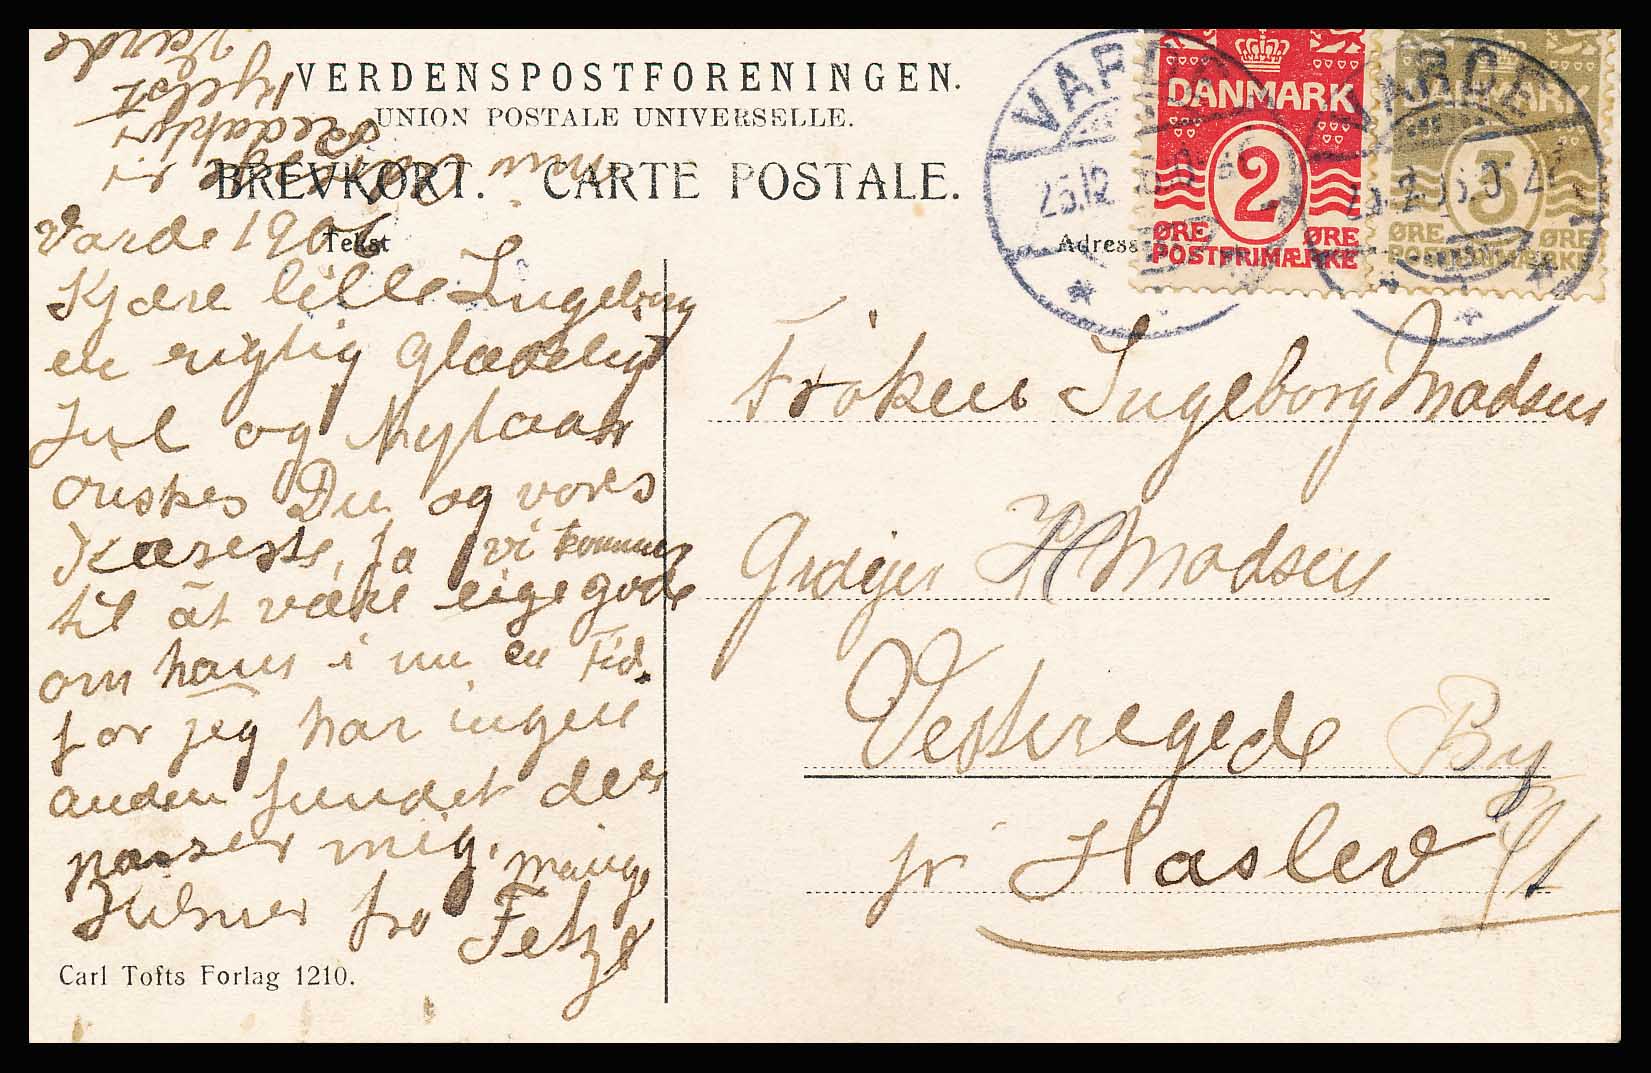 VERDENSPOSTFORENINGEN.
UNION POSTALE UNIVERSELLE.
BREVKORT. CARTE POSTALE.
Tekst
Adresse
VARDE
VARDE
DANMARK
2
ØRE ØRE
POSTFRIMÆRKE
DANMARK
3
ØRE ØRE
POSTFRIMÆRKE
Redaktør
Kyelst
Varde
Varde 1906
Kjære lille Ingeborg
en rigtig Glædelig
Jul og Nytaar
ønskes Du og vores
Kæreste, ja vi kommer
til at være lige gode
om hans i nu en Tid.
for jeg har ingen
anden fundet der
passer mig. mange
Hilsner fra
Frøken Ingeborg Madsen
H Madsen
Vesteregede By
pr Haslev St
Carl Tofts Forlag 1210.